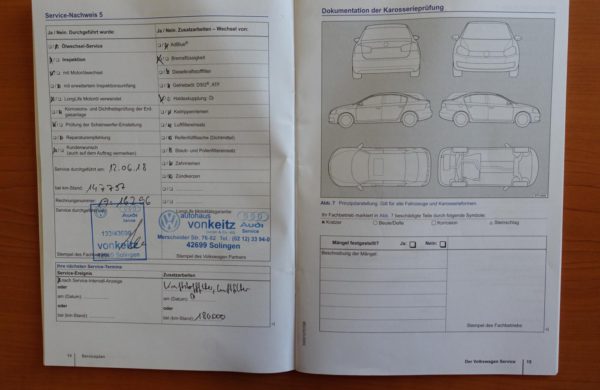 Service-Nachweis 5
Ja / Nein: Durchgeführt wurde:
Ölwechsel-Service
Inspektion
mit Motorölwechsel
mit erweitertem Inspektionsumfang
LongLife Motoröl verwendet
Korrosions- und Dichtheitsprüfung der Erdgasanlage
Prüfung der Scheinwerfer-Einstellung
Reparaturempfehlung
Kundenwunsch
(auch auf dem Auftrag vermerken)
Service durchgeführt am: 12.06.18
bei km-Stand: 147757
Rechnungsnummer:
Service durchgeführt
vonkeitz
Solingen
Stempel des
Ja / Nein: Zusatzarbeiten – Wechsel von:
AdBlue®
Bremsflüssigkeit
Dieselkraftstofffilter
Getriebeöl DSG®, ATF
Haldexkupplung
Keilrippenriemen
Luftfiltereinsatz
Reifenfüllflasche (Dichtmittel)
Staub- und Pollenfiltereinsatz
Zahnriemen
Zündkerzen
LongLife Mobilitätsgarantie
autohaus
vonkeitz
Audi
Service
Merscheider Str. 76-82 Tel.: (02 12) 33 94-0
42699 Solingen
Stempel des Volkswagen Partners
Ihre nächsten Service-Termine
Service-Ereignis
Zusatzarbeiten
nach Service-Intervall-Anzeige
oder
am (Datum):
oder
bei (km-Stand):
oder
am (Datum):
oder
bei (km-Stand): 180000
11 Serviceplan
Dokumentation der Karosserieprüfung
Abb. 7 Prinzipdarstellung: Gilt für alle Fahrzeuge und Karosserieformen.
Ihr Fachbetrieb markiert in Abb. 7 beschädigte Teile durch folgende Symbole:
Kratzer
Beule/Delle
Korrosion
Steinschlag
Mängel festgestellt? Ja: Nein:
Beschreibung der Mängel:
Stempel des Fachbetriebs
Der Volkswagen Service